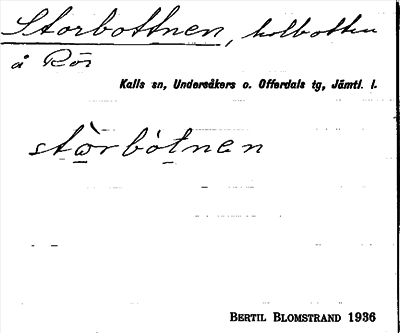 Storbottnen, kolbotten
å Rör
Kalls sn, Undersåkers o. Offerdals tg, Jämtl. l.
stòrbòtnen
BERTIL BLOMSTRAND 1936